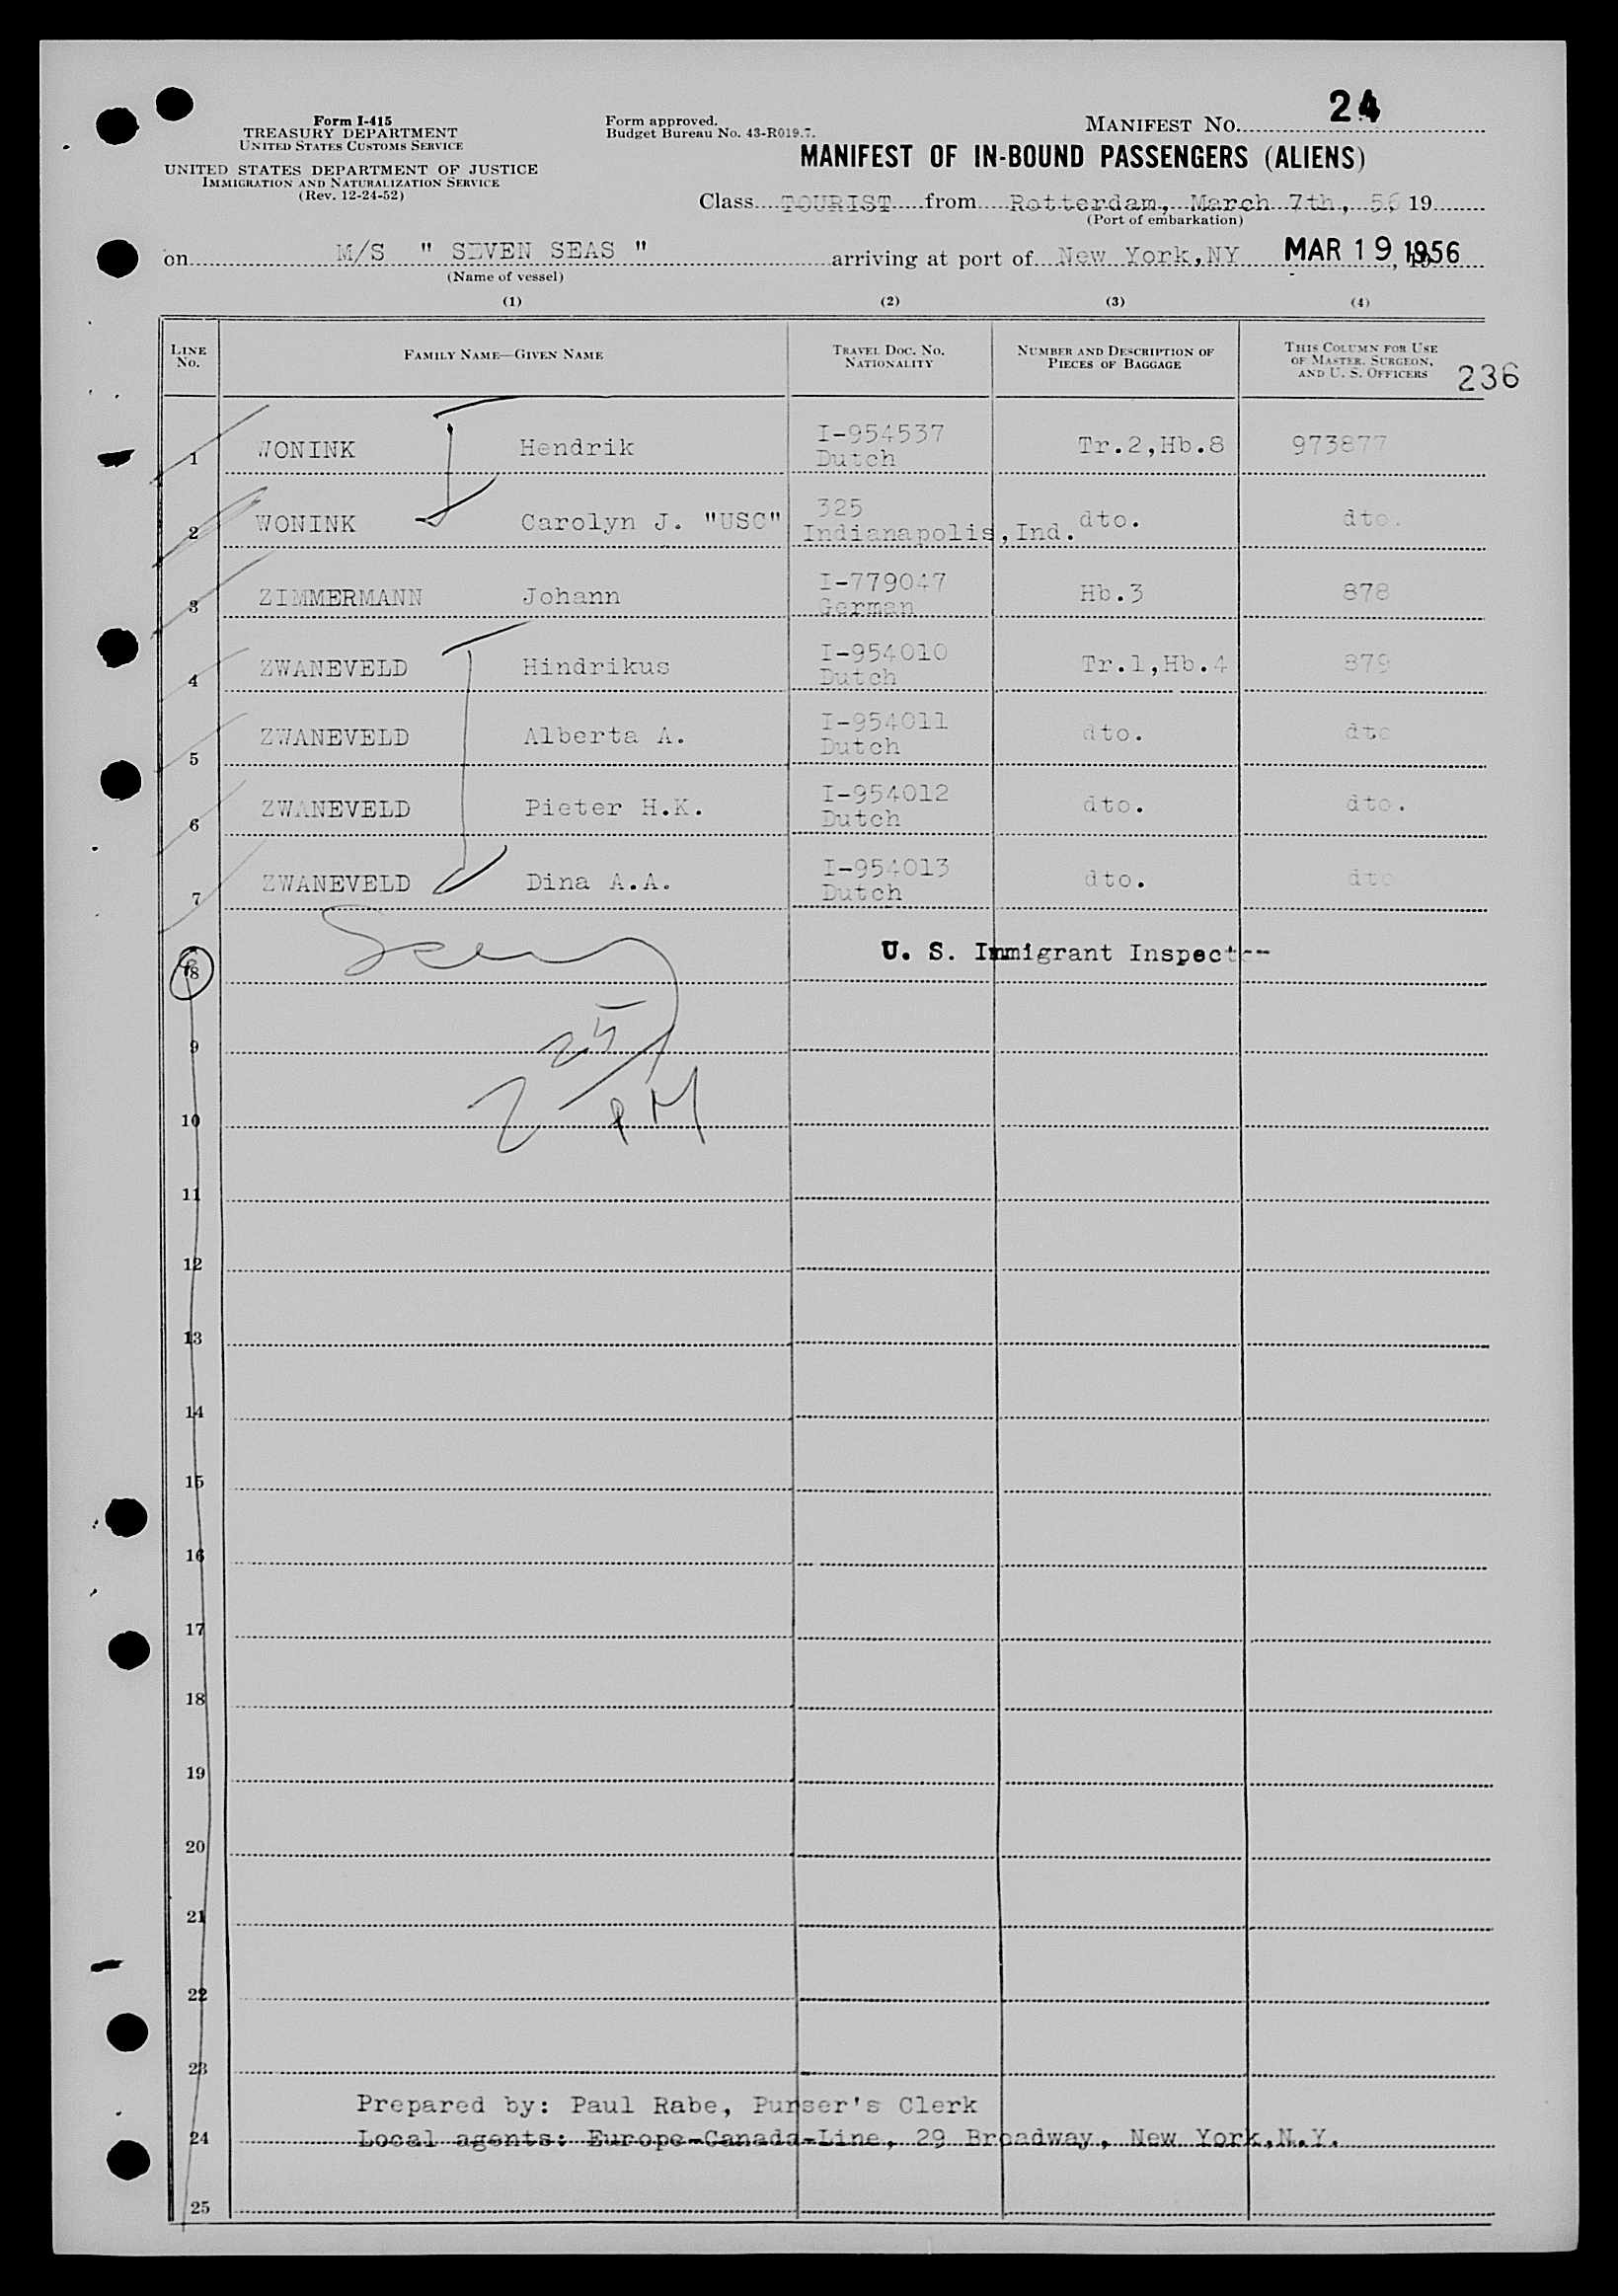 Form I-415
TREASURY DEPARTMENT
UNITED STATES CUSTOMS SERVICE
UNITED STATES DEPARTMENT OF JUSTICE
IMMIGRATION AND NATURALIZATION SERVICE
(Rev. 12-24-52)
Form approved.
Budget Bureau No. 43-R019.7.
MANIFEST NO. 24
MANIFEST OF IN-BOUND PASSENGERS (ALIENS)
Class TOURIST from Rotterdam, March 7th, 56 19
(Port of embarkation)
on M/S " SEVEN SEAS " arriving at port of New York,NY MAR 19 1956, 19
(Name of vessel)
(1) (2) (3) (4)
LINE No. FAMILY NAME—GIVEN NAME TRAVEL DOC. NO. NATIONALITY NUMBER AND DESCRIPTION OF PIECES OF BAGGAGE THIS COLUMN FOR USE OF MASTER, SURGEON, AND U. S. OFFICERS 236
1 WONINK Hendrik I-954537 Dutch Tr.2,Hb.8 973877
2 WONINK Carolyn J. "USC" 325 Indianapolis,Ind. dto. dto.
3 ZIMMERMANN Johann I-779047 German Hb.3 878
4 ZWANEVELD Hindrikus I-954010 Dutch Tr.1,Hb.4 879
5 ZWANEVELD Alberta A. I-954011 Dutch dto. dto
6 ZWANEVELD Pieter H.K. I-954012 Dutch dto. dto.
7 ZWANEVELD Dina A.A. I-954013 Dutch dto. dto
8 U. S. Immigrant Inspector
9 25
10 2 PM
11
12
13
14
15
16
17
18
19
20
21
22
23
Prepared by: Paul Rabe, Purser's Clerk
24 Local agents: Europe-Canada-Line, 29 Broadway, New York,N.Y.
25